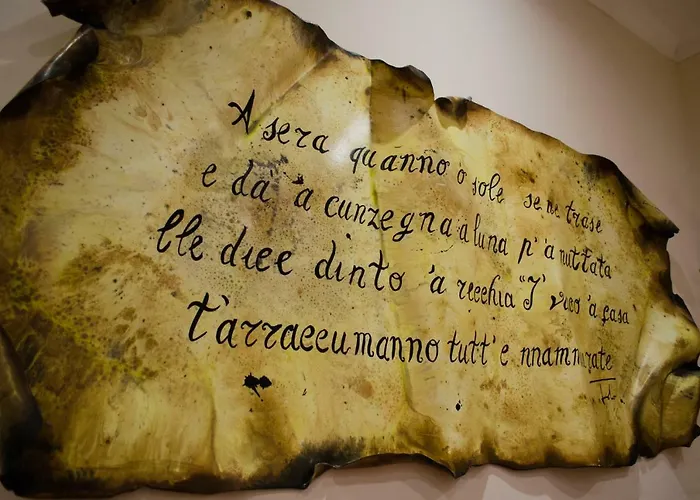 A sera quanno o sole se ne trase
e da' 'a cunzegna a luna p' 'a nuttata
lle dice dinto 'a recchia "I' vaco 'a casa
t'arraccumanno tutt' e nnammurate